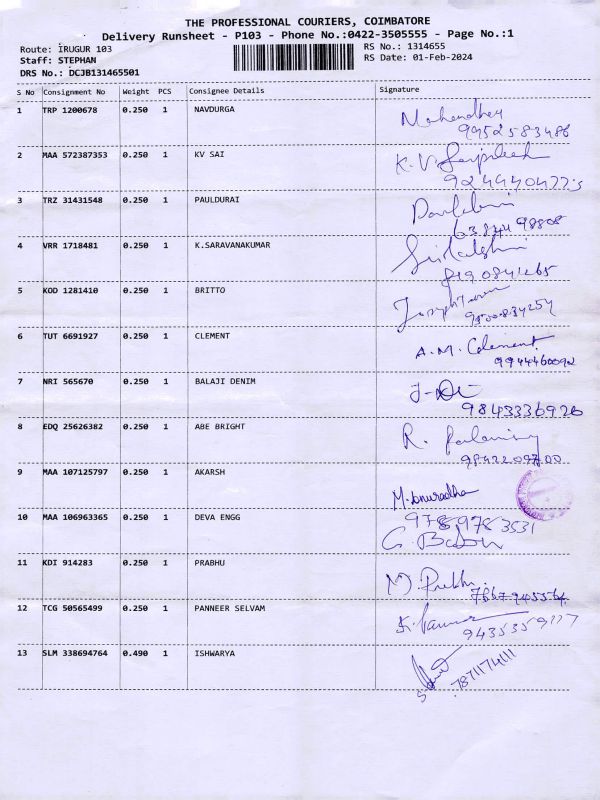 THE PROFESSIONAL COURIERS, COIMBATORE
Delivery Runsheet - P103 - Phone No.:0422-3505555 - Page No.:1
Route: IRUGUR 103 RS No.: 1314655
Staff: STEPHAN RS Date: 01-Feb-2024
DRS No.: DCJB131465501
S No Consignment No Weight PCS Consignee Details Signature
1 TRP 1200678 0.250 1 NAVDURGA
9952583486
2 MAA 572387353 0.250 1 KV SAI K.V.
3 TRZ 31431548 0.250 1 PAULDURAI
4 VRR 1718481 0.250 1 K.SARAVANAKUMAR
5 KOD 1281410 0.250 1 BRITTO
6 TUT 6691927 0.250 1 CLEMENT A.M. Clement
9944460092
7 NRI 565670 0.250 1 BALAJI DENIM
9843336920
8 EDQ 25626382 0.250 1 ABE BRIGHT R.
9 MAA 107125797 0.250 1 AKARSH M. Anuradha
9789783531
10 MAA 106963365 0.250 1 DEVA ENGG
11 KDI 914283 0.250 1 PRABHU M. Prabhu.
12 TCG 50565499 0.250 1 PANNEER SELVAM
13 SLM 338694764 0.490 1 ISHWARYA